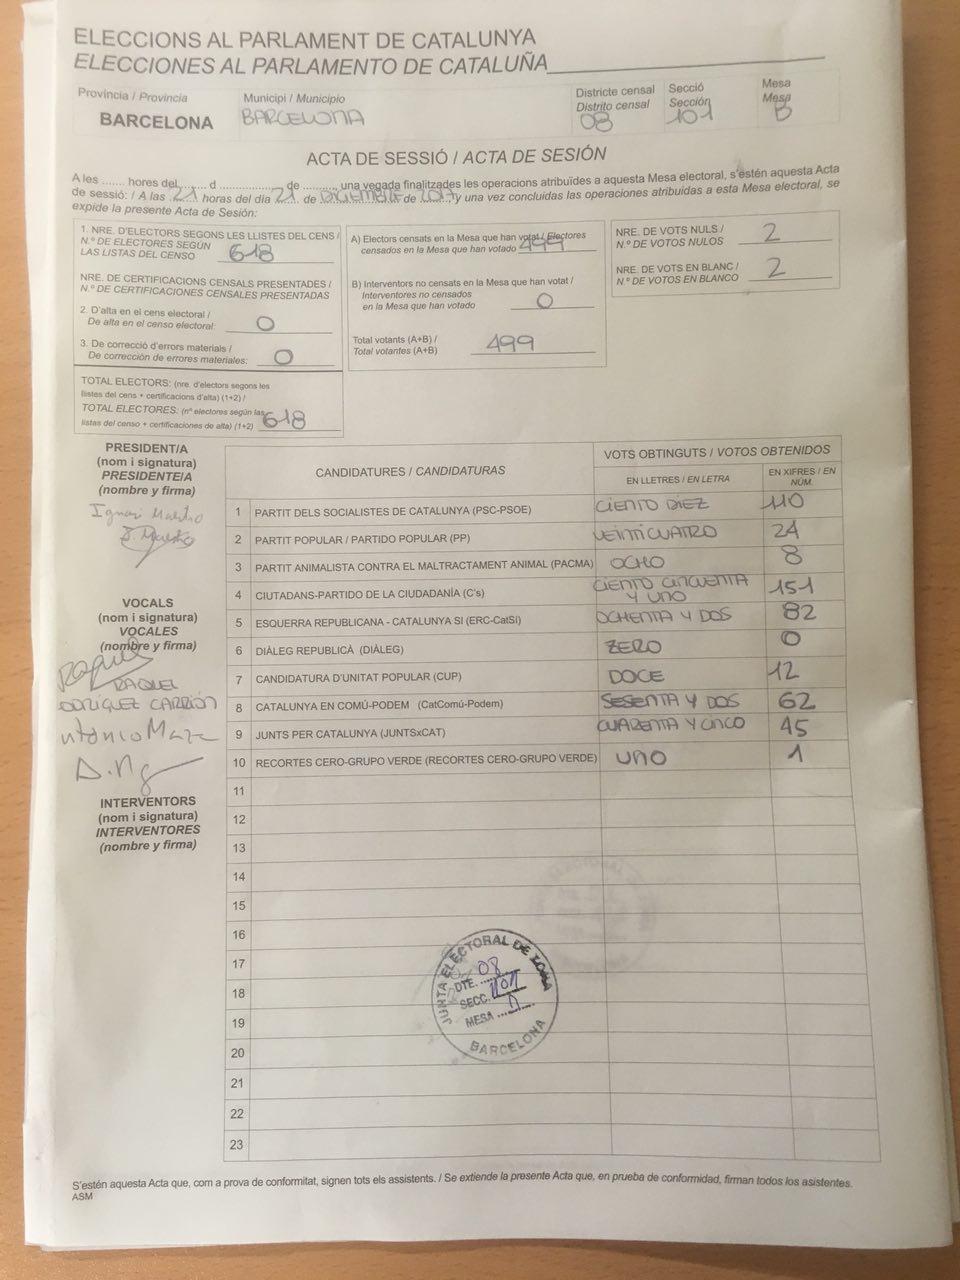 ELECCIONS AL PARLAMENT DE CATALUNYA
ELECCIONES AL PARLAMENTO DE CATALUÑA
Província / Provincia
BARCELONA
Municipi / Municipio
BARCELONA
Districte censal
Distrito censal
08
Secció
Sección
101
Mesa
Mesa
B
ACTA DE SESSIÓ / ACTA DE SESIÓN
A les ....... hores del ....... d .................. de .........., una vegada finalitzades les operacions atribuïdes a aquesta Mesa electoral, s'estén aquesta Acta
de sessió: / A las 21 horas del día 21 de DICIEMBRE de 2017, y una vez concluidas las operaciones atribuidas a esta Mesa electoral, se
expide la presente Acta de Sesión:
1. NRE. D'ELECTORS SEGONS LES LLISTES DEL CENS /
N.º DE ELECTORES SEGÚN
LAS LISTAS DEL CENSO 618
NRE. DE CERTIFICACIONS CENSALS PRESENTADES /
N.º DE CERTIFICACIONES CENSALES PRESENTADAS
2. D'alta en el cens electoral /
De alta en el censo electoral: 0
3. De correcció d'errors materials /
De corrección de errores materiales: 0
TOTAL ELECTORS: (nre. d'electors segons les
llistes del cens + certificacions d'alta) (1+2) /
TOTAL ELECTORES: (nº electores según las
listas del censo + certificaciones de alta) (1+2) 618
A) Electors censats en la Mesa que han votat / Electores
censados en la Mesa que han votado 499
B) Interventors no censats en la Mesa que han votat /
Interventores no censados
en la Mesa que han votado 0
Total votants (A+B) /
Total votantes (A+B) 499
NRE. DE VOTS NULS /
N.º DE VOTOS NULOS 2
NRE. DE VOTS EN BLANC /
N.º DE VOTOS EN BLANCO 2
PRESIDENT/A
(nom i signatura)
PRESIDENTE/A
(nombre y firma)
Ignasi Maestro
VOCALS
(nom i signatura)
VOCALES
(nombre y firma)
Raquel
RAQUEL
CARRIÓN
INTERVENTORS
(nom i signatura)
INTERVENTORES
(nombre y firma)
CANDIDATURES / CANDIDATURAS
VOTS OBTINGUTS / VOTOS OBTENIDOS
EN LLETRES / EN LETRA
EN XIFRES / EN NÚM.
1 PARTIT DELS SOCIALISTES DE CATALUNYA (PSC-PSOE) CIENTO DIEZ 110
2 PARTIT POPULAR / PARTIDO POPULAR (PP) VEINTICUATRO 24
3 PARTIT ANIMALISTA CONTRA EL MALTRACTAMENT ANIMAL (PACMA) OCHO 8
4 CIUTADANS-PARTIDO DE LA CIUDADANÍA (C's) CIENTO CINCUENTA Y UNO 151
5 ESQUERRA REPUBLICANA - CATALUNYA SÍ (ERC-CatSí) OCHENTA Y DOS 82
6 DIÀLEG REPUBLICÀ (DIÀLEG) ZERO 0
7 CANDIDATURA D'UNITAT POPULAR (CUP) DOCE 12
8 CATALUNYA EN COMÚ-PODEM (CatComú-Podem) SESENTA Y DOS 62
9 JUNTS PER CATALUNYA (JUNTSxCAT) CUARENTA Y CINCO 45
10 RECORTES CERO-GRUPO VERDE (RECORTES CERO-GRUPO VERDE) UNO 1
11
12
13
14
15
16
17
18
19
20
21
22
23
JUNTA ELECTORAL DE ZONA
DTE. 08
SECC. 101
MESA
BARCELONA
S'estén aquesta Acta que, com a prova de conformitat, signen tots els assistents. / Se extiende la presente Acta que, en prueba de conformidad, firman todos los asistentes.
ASM